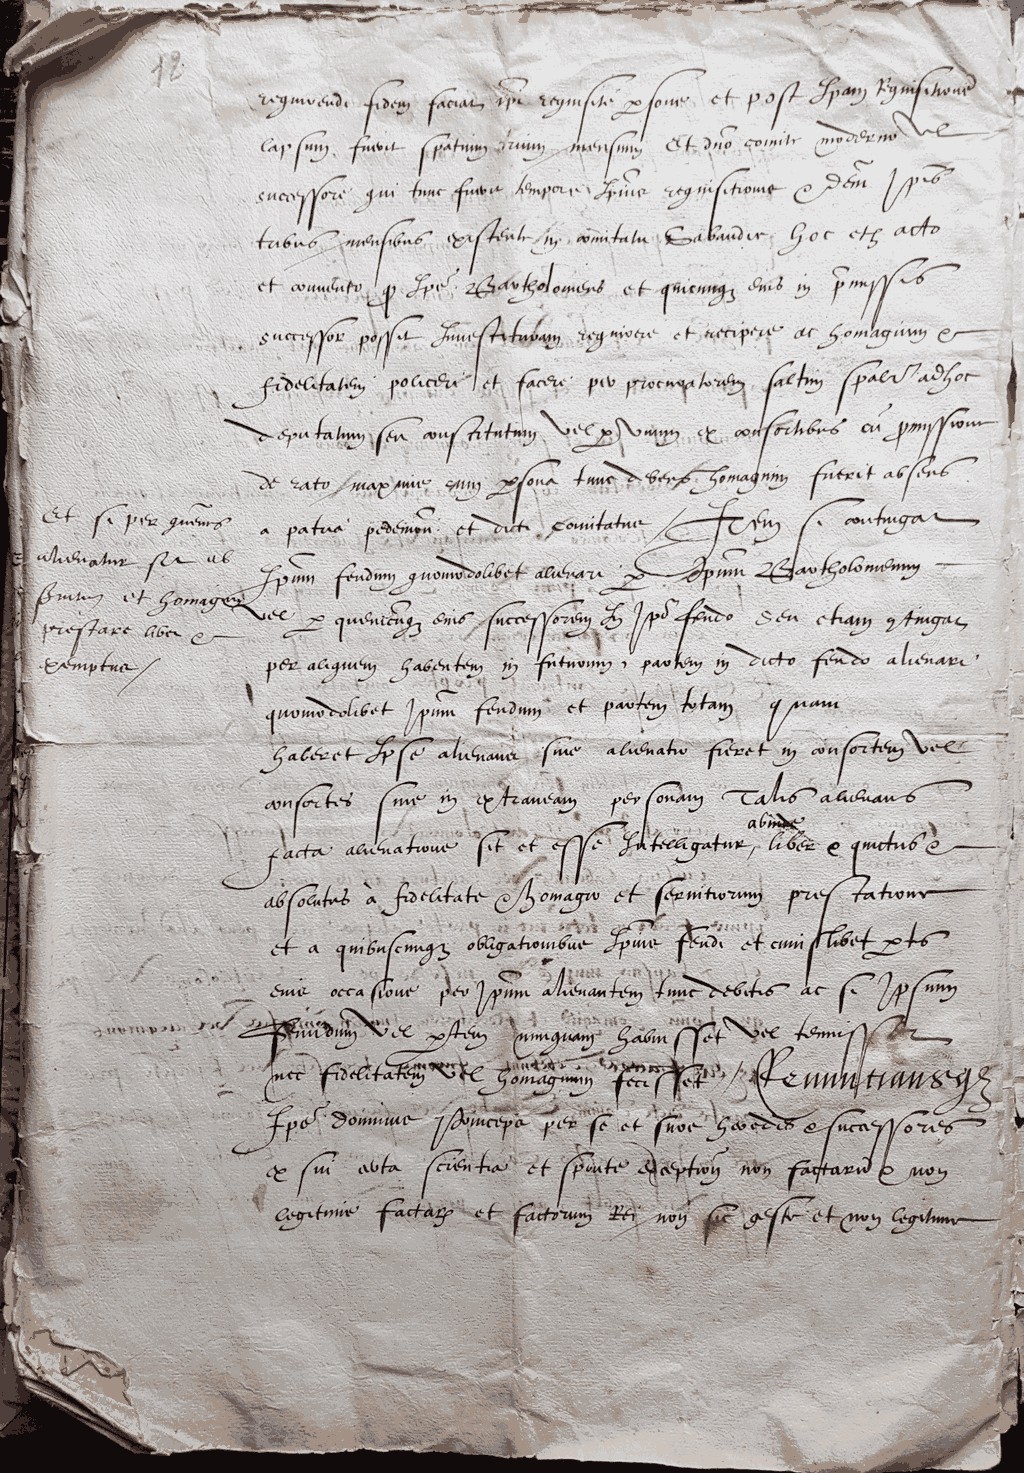 12
requirendi fidem faciat ipi requisite psone et post Ipam Requisitione
lapsum fuerit spatium trium mensium Et dno comite moderno vel
successore qui tunc fuerit tempore Ipius requisitionis & dem Ipis
tribus mensibus existente in comitatu Sabaudie hoc eth acto
et convento q Ipe Bartholomeus et quicunq eius in pmissis
successor possit Investituram requirere et recipere ac homagium &
fidelitatem policeri et facere per procuratorem saltim spalr adhoc
deputatum seu constitutum vel p unum ex consortibus cu pmissione
de rato maxime cum psona tunc debens homagium fuerit absens
a patria pedemon et dicti comitatus / Item si contingat
Ipum feudum quomodolibet alienari p Ipum Bartholomeum
vel p quencuq eius successorem In Ipo feudo seu etiam qtingat
per aliquem habentem in futurum partem in dicto feudo alienari
quomodolibet Ipum feudum et partem totam quam
haberet Ipse alienans sive alienatio fieret in consortem vel
consortes sive in extraneam personam Talis alienans
abinde
facta alienatione sit et esse Intelligatur liber & quictus &
absolutus à fidelitate & homagio et servitiorum prestatione
et a quibuscumq obligationibus Ipius feudi et cuiuslibet ptis
eius occasione per Ipum alienantem tunc debitis ac si Ipsum
feudum vel ptem numquam habuisset vel tenuisset
nec fidelitatem vel homagium fecisset / Renuncians q
Ipe dominus princeps per se et suos heredes & successores
ex sui certa scientia et sponte exceptioni non factaru & non
legitime factaru et factorum Rei non sic geste et non legitime
Et si per quemvis
alienatur sit ab
et homagium
prestare liber &
exemptus /